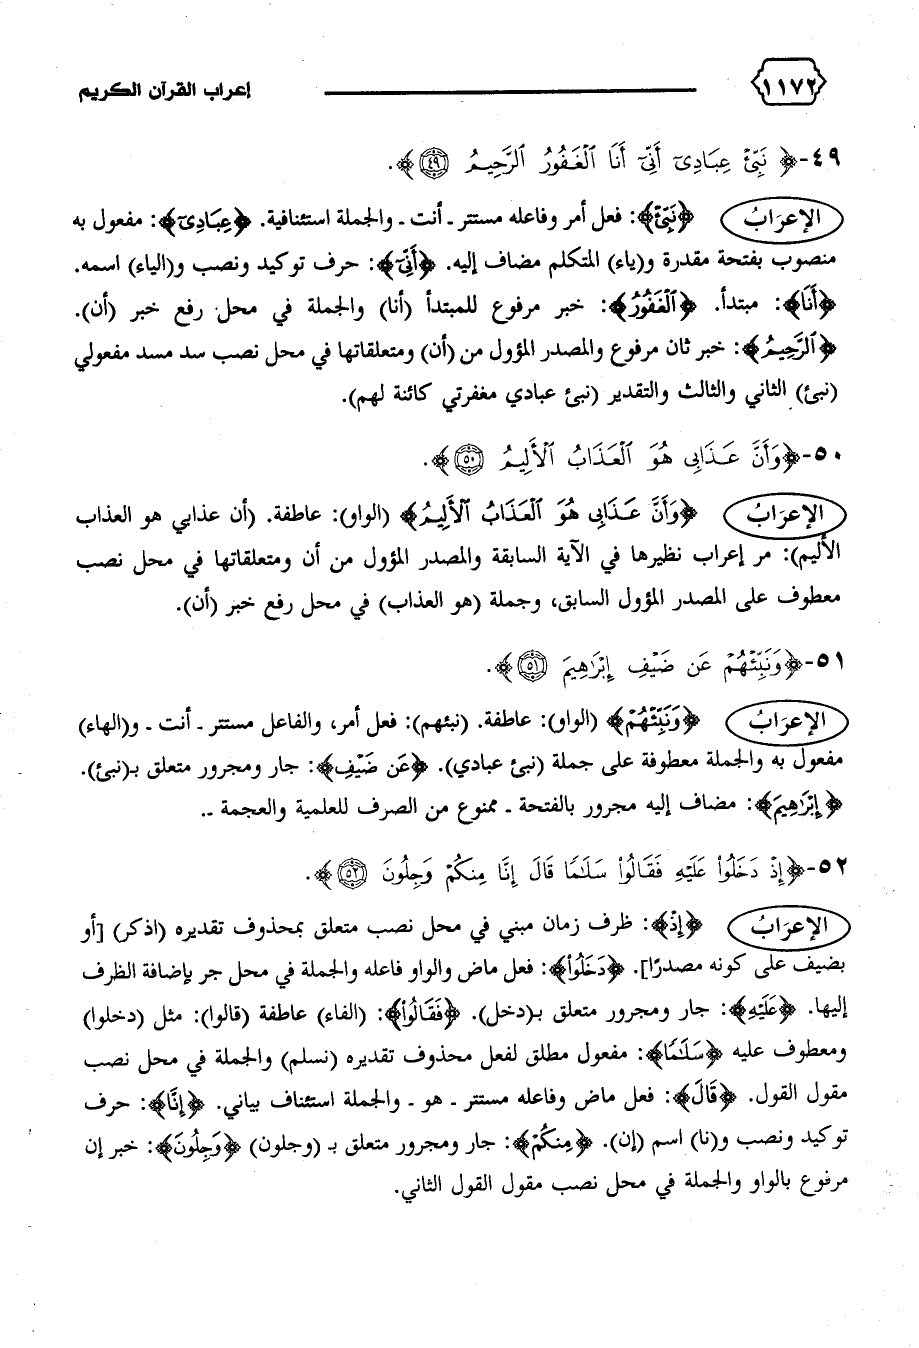 ١١٧٢ إعراب القرآن الكريم
٤٩-﴿ نَبِّئْ عِبَادِىٓ أَنِّىٓ أَنَا ٱلْغَفُورُ ٱلرَّحِيمُ ٤٩﴾.
الإعرَابُ ﴿نَبِّئْ﴾: فعل أمر وفاعله مستتر ـ أنت ـ والجملة استئنافية. ﴿عِبَادِىٓ﴾: مفعول به
منصوب بفتحة مقدرة و(ياء) المتكلم مضاف إليه. ﴿أَنِّىٓ﴾: حرف توكيد ونصب و(الياء) اسمه.
﴿أَنَا﴾: مبتدأ. ﴿ٱلْغَفُورُ﴾: خبر مرفوع للمبتدأ (أنا) والجملة في محل رفع خبر (أن).
﴿ٱلرَّحِيمُ﴾: خبر ثان مرفوع والمصدر المؤول من (أن) ومتعلقاتها في محل نصب سد مسد مفعولي
(نبئ) الثاني والثالث والتقدير (نبئ عبادي مغفرتي كائنة لهم).
٥٠-﴿وَأَنَّ عَذَابِى هُوَ ٱلْعَذَابُ ٱلْأَلِيمُ ٥٠﴾.
الإعرَابُ ﴿وَأَنَّ عَذَابِى هُوَ ٱلْعَذَابُ ٱلْأَلِيمُ﴾ (الواو): عاطفة. (أن عذابي هو العذاب
الأليم): مر إعراب نظيرها في الآية السابقة والمصدر المؤول من أن ومتعلقاتها في محل نصب
معطوف على المصدر المؤول السابق، وجملة (هو العذاب) في محل رفع خبر (أن).
٥١-﴿وَنَبِّئْهُمْ عَن ضَيْفِ إِبْرَٰهِيمَ ٥١﴾.
الإعرَابُ ﴿وَنَبِّئْهُمْ﴾ (الواو): عاطفة. (نبئهم): فعل أمر، والفاعل مستتر ـ أنت ـ و(الهاء)
مفعول به والجملة معطوفة على جملة (نبئ عبادي). ﴿عَن ضَيْفِ﴾: جار ومجرور متعلق بـ(نبئ).
﴿إِبْرَٰهِيمَ﴾: مضاف إليه مجرور بالفتحة ـ ممنوع من الصرف للعلمية والعجمة ـ.
٥٢-﴿إِذْ دَخَلُوا۟ عَلَيْهِ فَقَالُوا۟ سَلَٰمًا قَالَ إِنَّا مِنكُمْ وَجِلُونَ ٥٢﴾.
الإعرَابُ ﴿إِذْ﴾: ظرف زمان مبني في محل نصب متعلق بمحذوف تقديره (اذكر) [أو
بضيف على كونه مصدرًا]. ﴿دَخَلُوا۟﴾: فعل ماض والواو فاعله والجملة في محل جر بإضافة الظرف
إليها. ﴿عَلَيْهِ﴾: جار ومجرور متعلق بـ(دخل). ﴿فَقَالُوا۟﴾: (الفاء) عاطفة (قالوا): مثل (دخلوا)
ومعطوف عليه ﴿سَلَٰمًا﴾: مفعول مطلق لفعل محذوف تقديره (نسلم) والجملة في محل نصب
مقول القول. ﴿قَالَ﴾: فعل ماض وفاعله مستتر ـ هو ـ والجملة استئناف بياني. ﴿إِنَّا﴾: حرف
توكيد ونصب و(نا) اسم (إن). ﴿مِنكُمْ﴾: جار ومجرور متعلق بـ (وجلون) ﴿وَجِلُونَ﴾: خبر إن
مرفوع بالواو والجملة في محل نصب مقول القول الثاني.